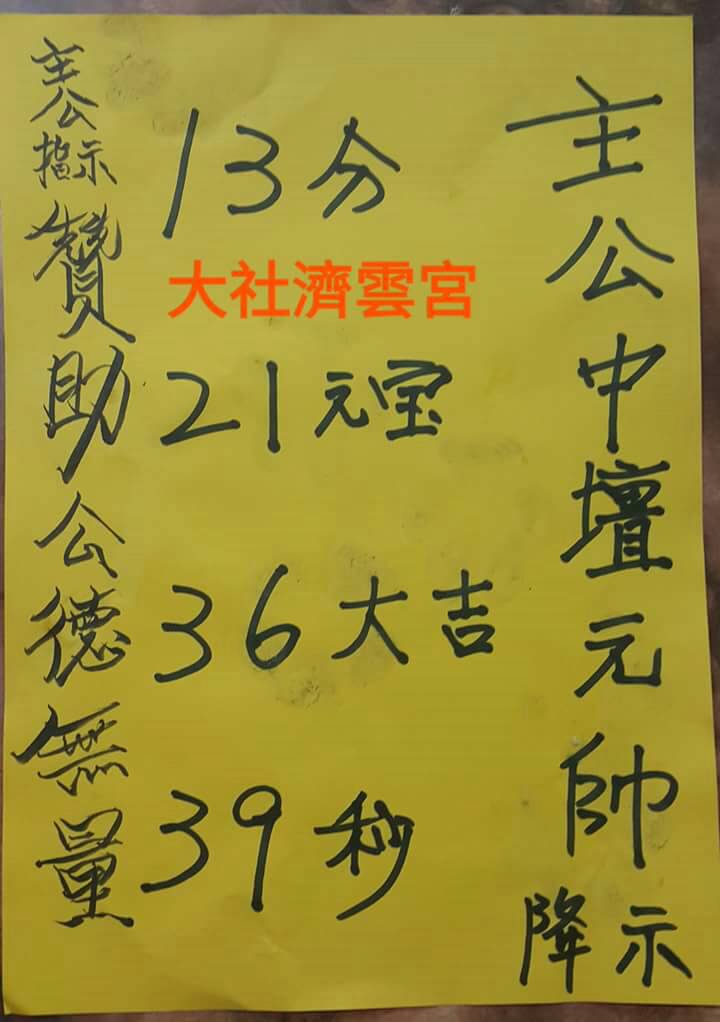 主公中壇元帥
降示
13分
大社濟雲宮
21元宝
36大吉
39秒
主公指示
贊助公德無量